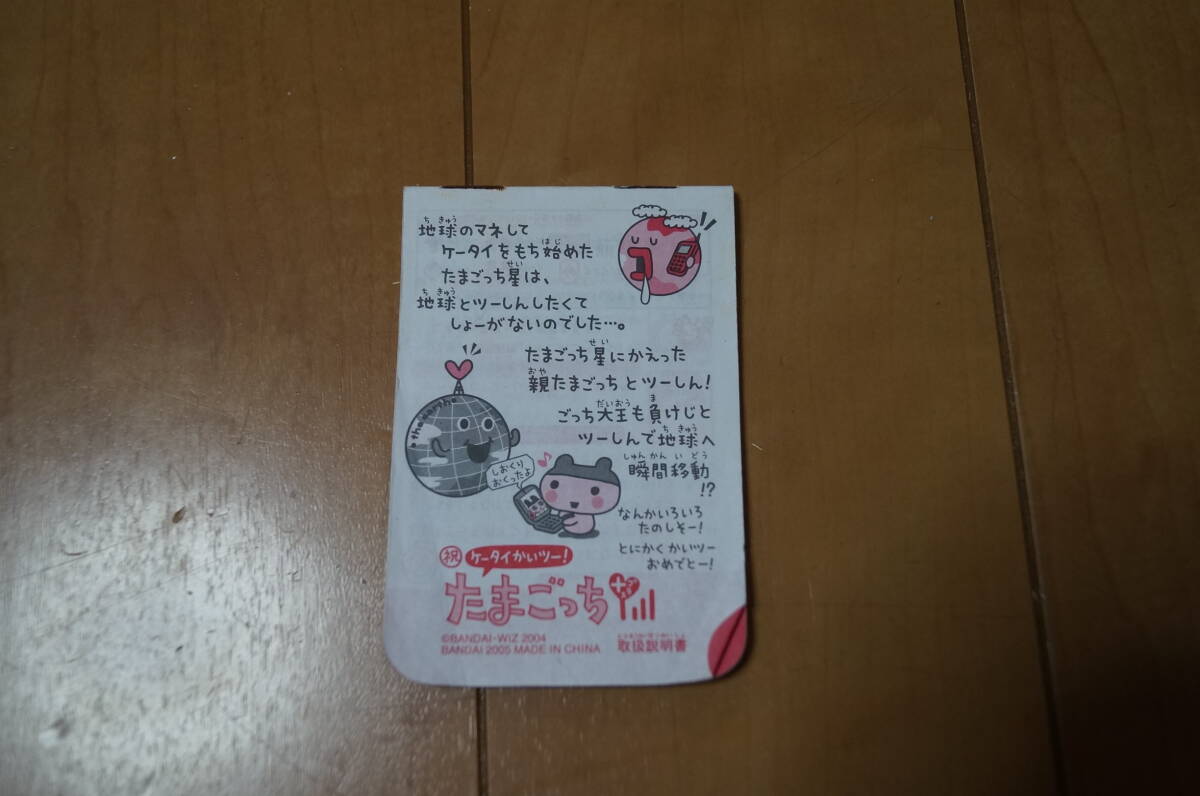 地球のマネして
ケータイをもち始めた
たまごっち星は、
地球とツーしんしたくて
しょーがないのでした…。
たまごっち星にかえった
親たまごっちとツーしん!
ごっち大王も負けじと
ツーしんで地球へ
瞬間移動
!?
the earth
しおくり
おくったよ
なんかいろいろ
たのしそー!
とにかくかいツー
おめでとー!
祝 ケータイかいツー!
たまごっち
©BANDAI・WiZ 2004
BANDAI 2005 MADE IN CHINA
取扱説明書